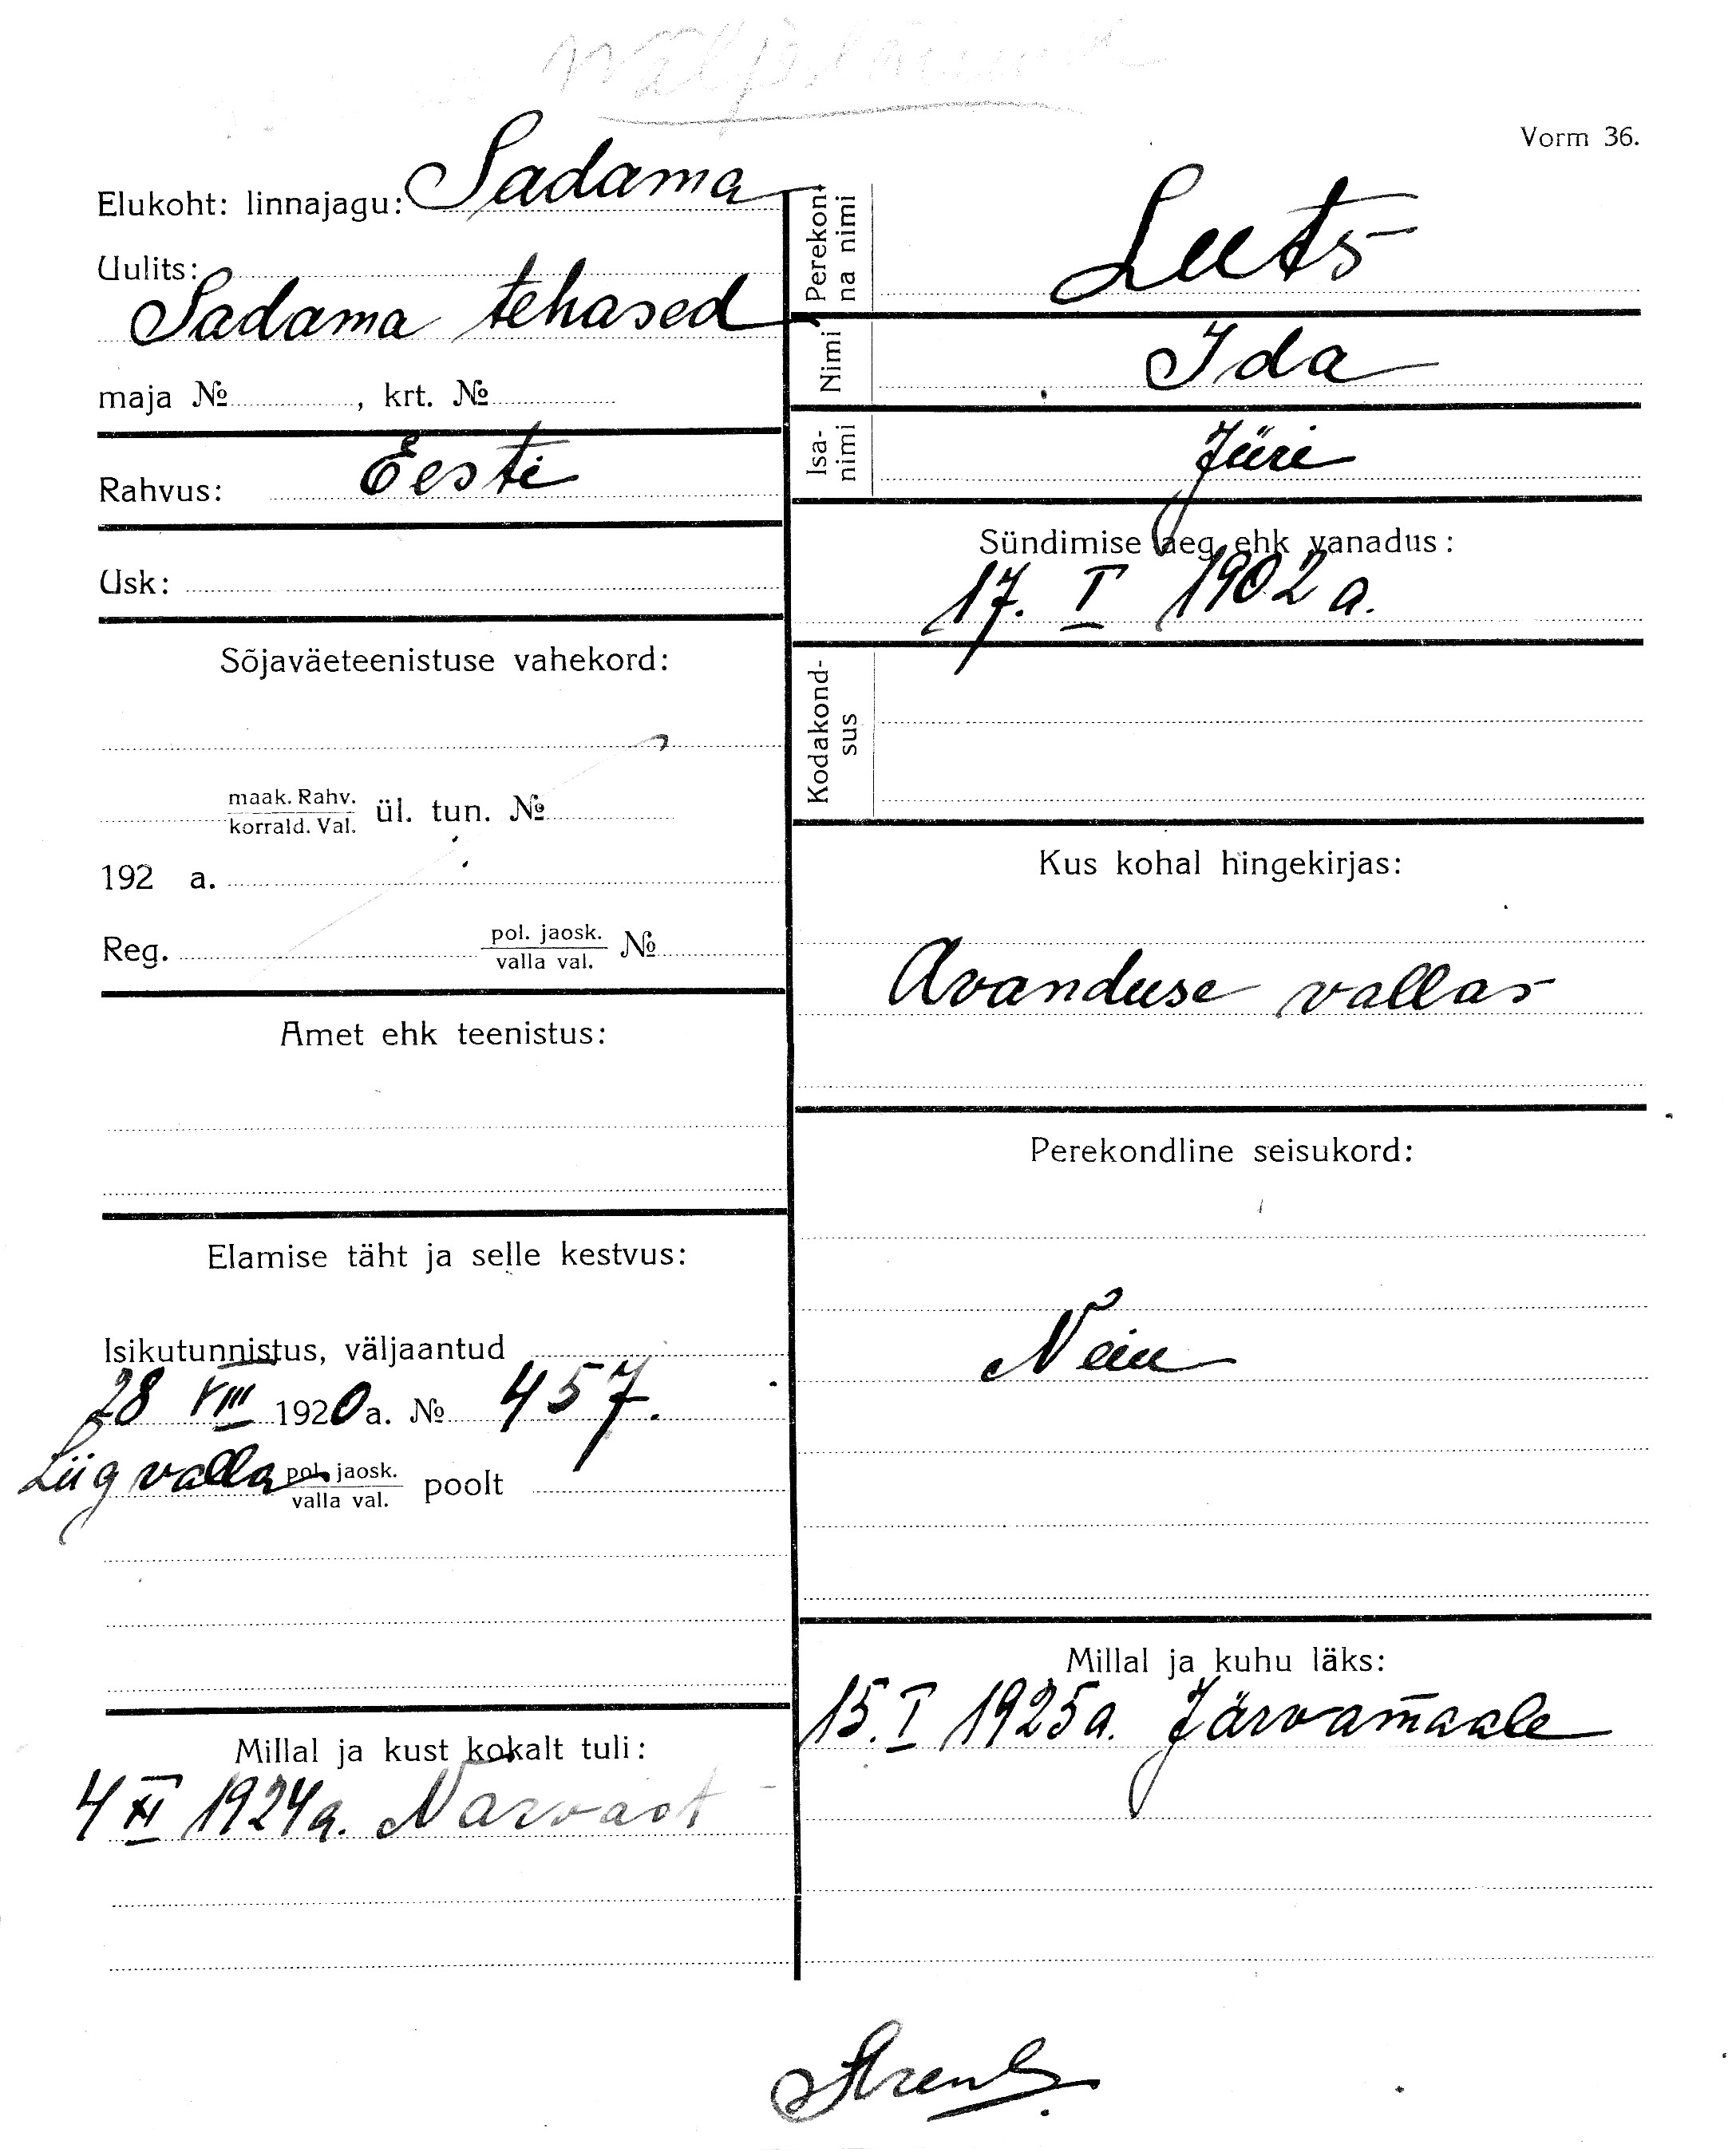 Vorm 36.
Elukoht: linnajagu: Sadama
Uulits:
Sadama tehased
maja № , krt. №
Rahvus: Eesti
Usk:
Sõjaväeteenistuse vahekord:
maak. Rahv.
korrald. Val. ül. tun. №
192 a.
Reg. pol. jaosk.
valla val. №
Amet ehk teenistus:
Elamise täht ja selle kestvus:
Isikutunnistus, väljaantud
28 VIII 1920 a. № 457.
Liigvalla pol. jaosk.
valla val. poolt
Millal ja kust kokalt tuli:
4 XI 1924 a. Narvast
Perekon-
na nimi
Luts
Nimi
Ida
Isa-
nimi
Jüri
Sündimise aeg ehk vanadus:
17. I 1902 a.
Kodakond-
sus
Kus kohal hingekirjas:
Avanduse vallas
Perekondline seisukord:
Neiu
Millal ja kuhu läks:
15. I 1925 a. Järvamaale